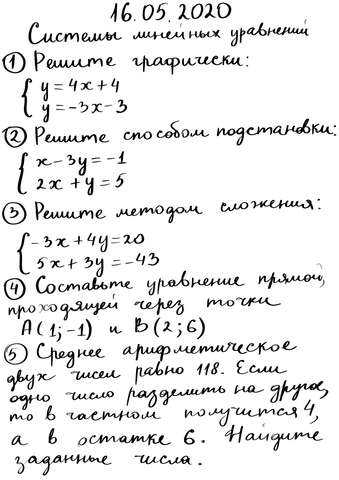 16.05.2020
Системы линейных уравнений
① Решите графически:
{ y = 4x + 4
y = -3x - 3
② Решите способом подстановки:
{ x - 3y = -1
2x + y = 5
③ Решите методом сложения:
{ -3x + 4y = 20
5x + 3y = -43
④ Составьте уравнение прямой,
проходящей через точки
A(1; -1) и B(2; 6)
⑤ Среднее арифметическое
двух чисел равно 118. Если
одно число разделить на другое,
то в частном получится 4,
а в остатке 6. Найдите
заданные числа.